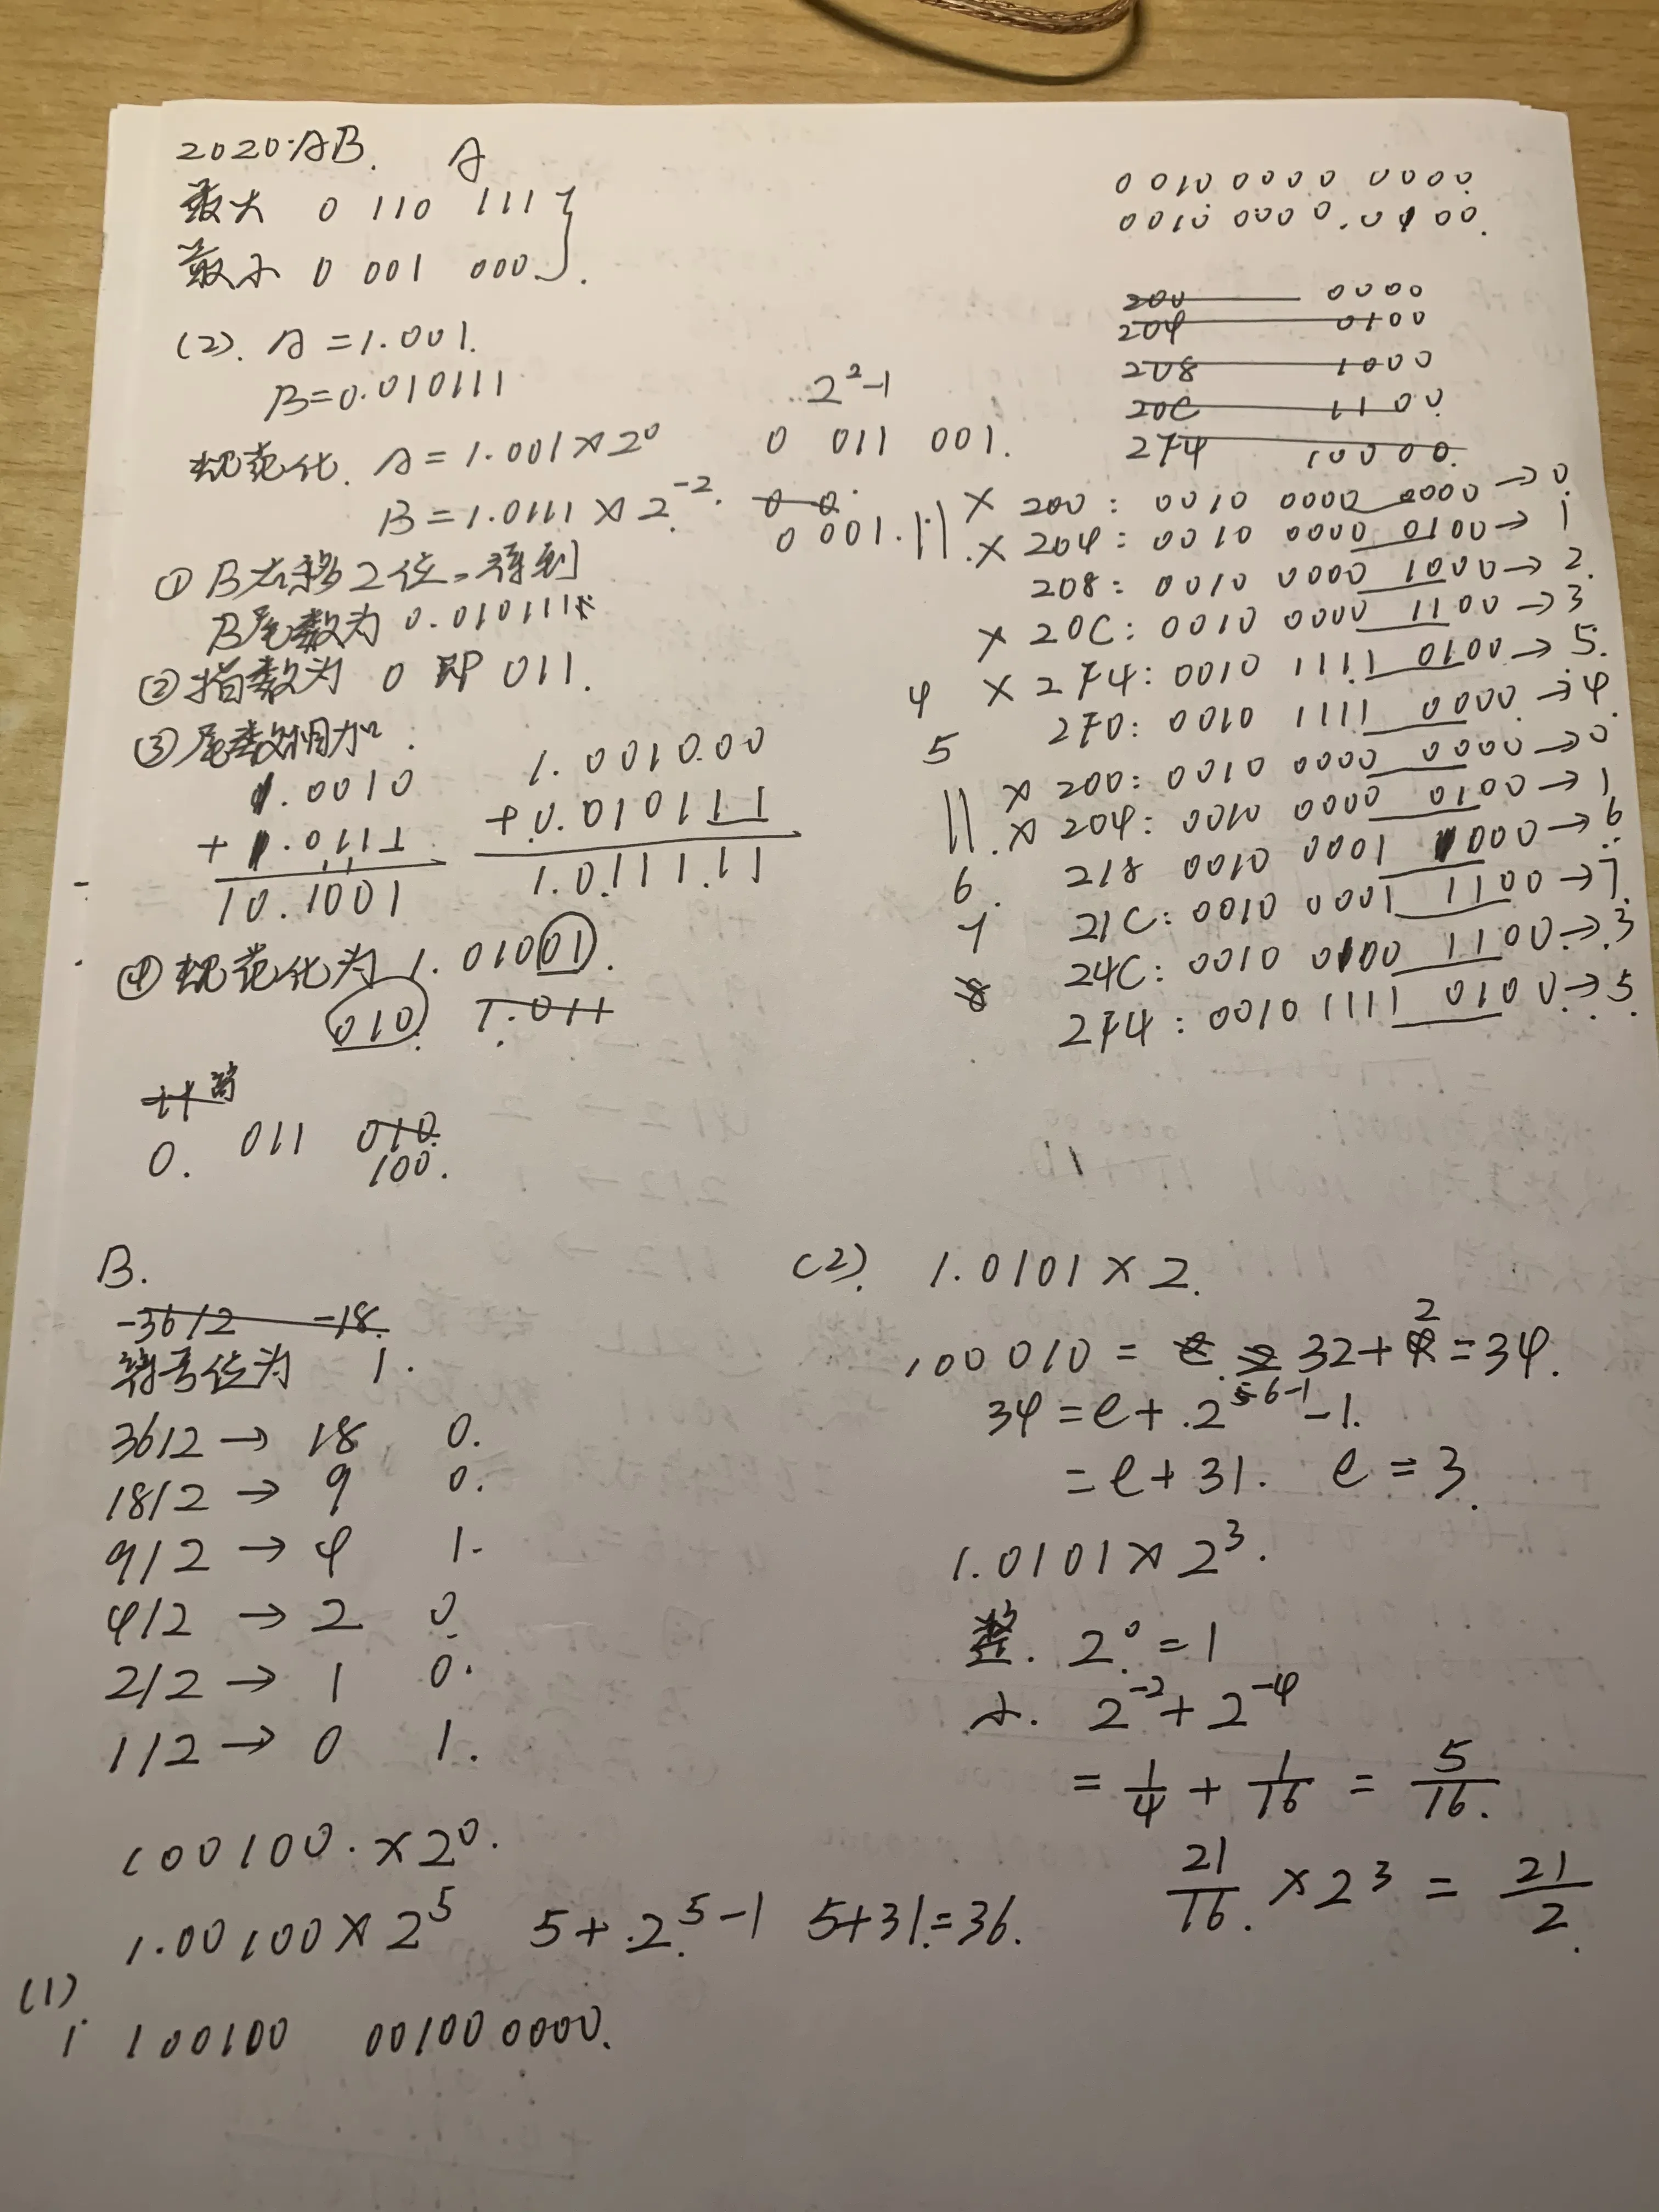 2020.AB. A
最大 0 110 111
最小 0 001 000.
(2). A = 1.001.
B=0.010111
2²-1
规范化. A = 1.001 × 2⁰ 0 011 001.
B = 1.0111 × 2⁻². 0 0.
0 001.
① B右移2位,得到
B尾数为 0.010111
② 指数为 0 即 011.
③ 尾数相加.
1.0010
+ 1.0111
10.1001
1.001000
+0.010111
1.011111
④ 规范化为 1.01001.
010. 1.011
计
0. 011 010.
100.
0010 0000 0000.
0010 0000 0100.
200 0000
204 0100
208 1000
20C 1100
2F4 10000.
× 200: 0010 0000 0000 → 0.
× 204: 0010 0000 0100 → 1
208: 0010 0000 1000 → 2.
× 20C: 0010 0000 1100 → 3
4 × 2F4: 0010 1111 0100 → 5.
5 2F0: 0010 1111 0000 → 4.
× 200: 0010 0000 0000 → 0
× 204: 0010 0000 0100 → 1
6. 218 0010 0001 1000 → 6
7 21C: 0010 0001 1100 → 7.
8 24C: 0010 0100 1100 → 3
2F4: 0010 1111 0100 → 5.
B.
-36/2 -18.
符号位为 1.
36/2 → 18 0.
18/2 → 9 0.
9/2 → 4 1.
4/2 → 2 0.
2/2 → 1 0.
1/2 → 0 1.
100100. × 2⁰.
1.00100 × 2⁵ 5+.2⁵-1 5+31=36.
(1)
1 100100 001000000.
(2). 1.0101 × 2.
100010 = 32+2=34.
34 = e + 2⁶⁻¹ - 1.
= e + 31. e = 3.
1.0101 × 2³.
整. 2⁰ = 1
小. 2⁻² + 2⁻⁴
= 1/4 + 1/16 = 5/16.
21/16 × 2³ = 21/2.